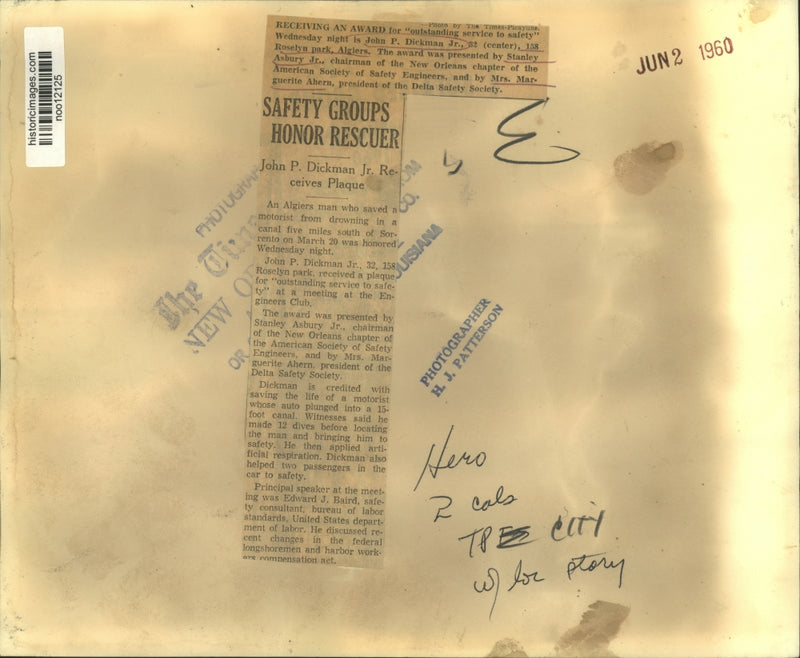 Photo by The Times-Picayune.
RECEIVING AN AWARD for "outstanding service to safety"
Wednesday night is John P. Dickman Jr., 32 (center), 158
Roselyn park, Algiers. The award was presented by Stanley
Asbury Jr., chairman of the New Orleans chapter of the
American Society of Safety Engineers, and by Mrs. Mar-
guerite Ahern, president of the Delta Safety Society.
JUN 2 1960
historicimages.com
noo12125
SAFETY GROUPS
HONOR RESCUER
John P. Dickman Jr. Re-
ceives Plaque
An Algiers man who saved a
motorist from drowning in a
canal five miles south of Sor-
rento on March 20 was honored
Wednesday night.
John P. Dickman Jr., 32, 158
Roselyn park, received a plaque
for "outstanding service to safe-
ty" at a meeting at the En-
gineers Club.
The award was presented by
Stanley Asbury Jr., chairman
of the New Orleans chapter of
the American Society of Safety
Engineers, and by Mrs. Mar-
guerite Ahern, president of the
Delta Safety Society.
Dickman is credited with
saving the life of a motorist
whose auto plunged into a 15-
foot canal. Witnesses said he
made 12 dives before locating
the man and bringing him to
safety. He then applied arti-
ficial respiration. Dickman also
helped two passengers in the
car to safety.
Principal speaker at the meet-
ing was Edward J. Baird, safe-
ty consultant, bureau of labor
standards, United States depart-
ment of labor. He discussed re-
cent changes in the federal
longshoremen and harbor work-
ers compensation act.
PHOTOGRA
The Tim
NEW O
OR
OM
CO.
OUISIANA
PHOTOGRAPHER
H. J. PATTERSON
Hero
2 cols
TP CITY
w/ loc story